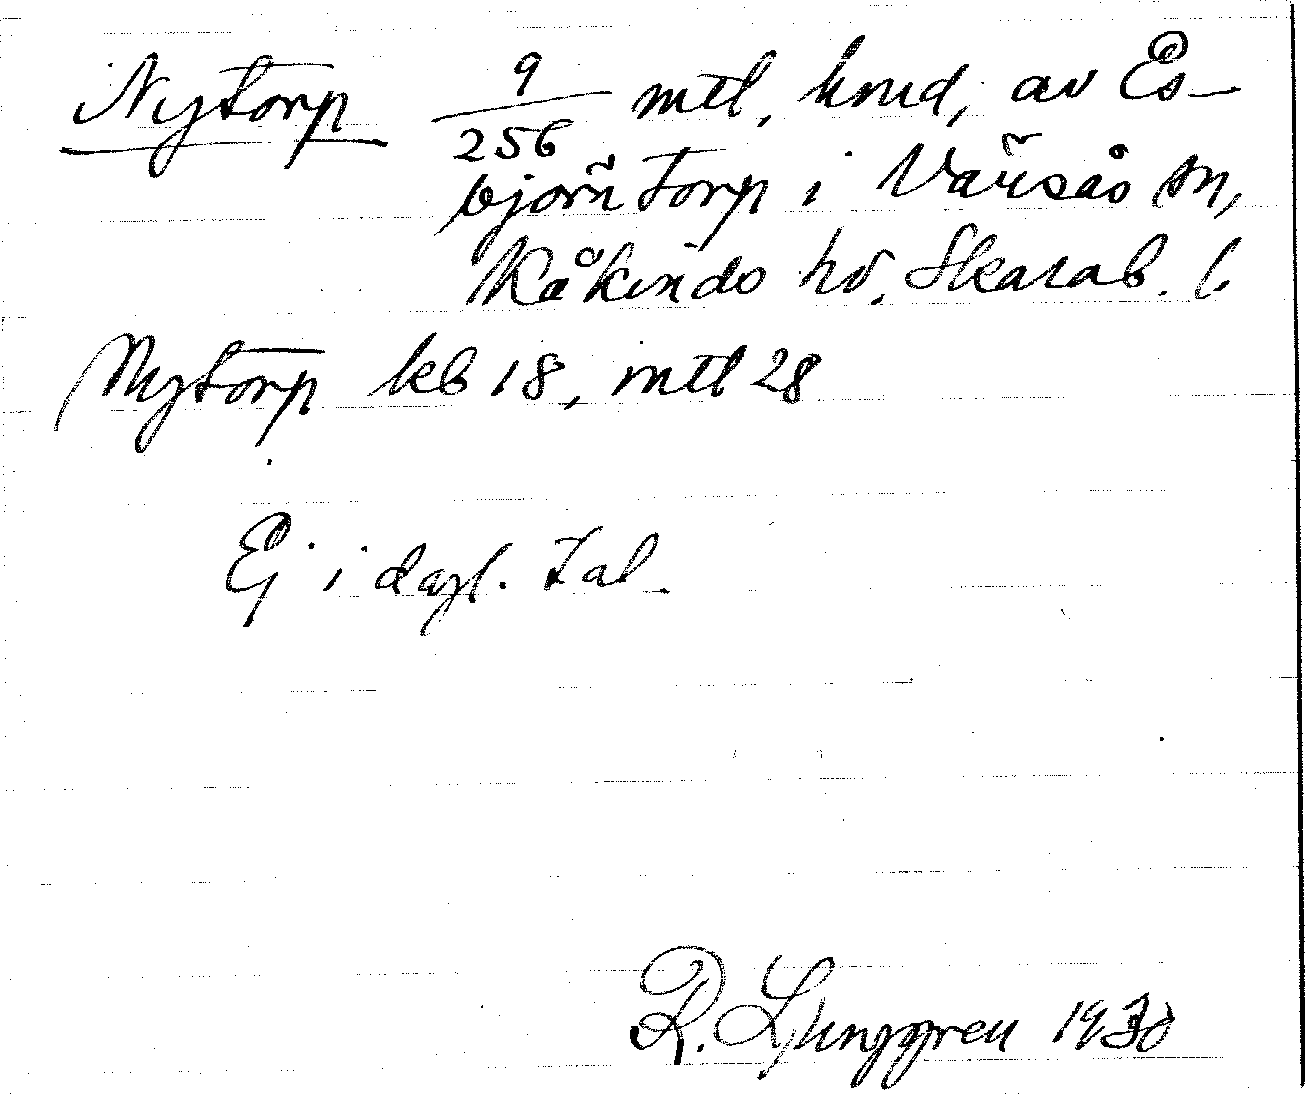 Nytorp 9/256 mtl, hmd, av Es-
björntorp i Värsås sn,
Kåkinds hd. Skarab. l.
Nytorp kb 18, mtl 28
Ej i dagl. tal.
R. Ljunggren 1930